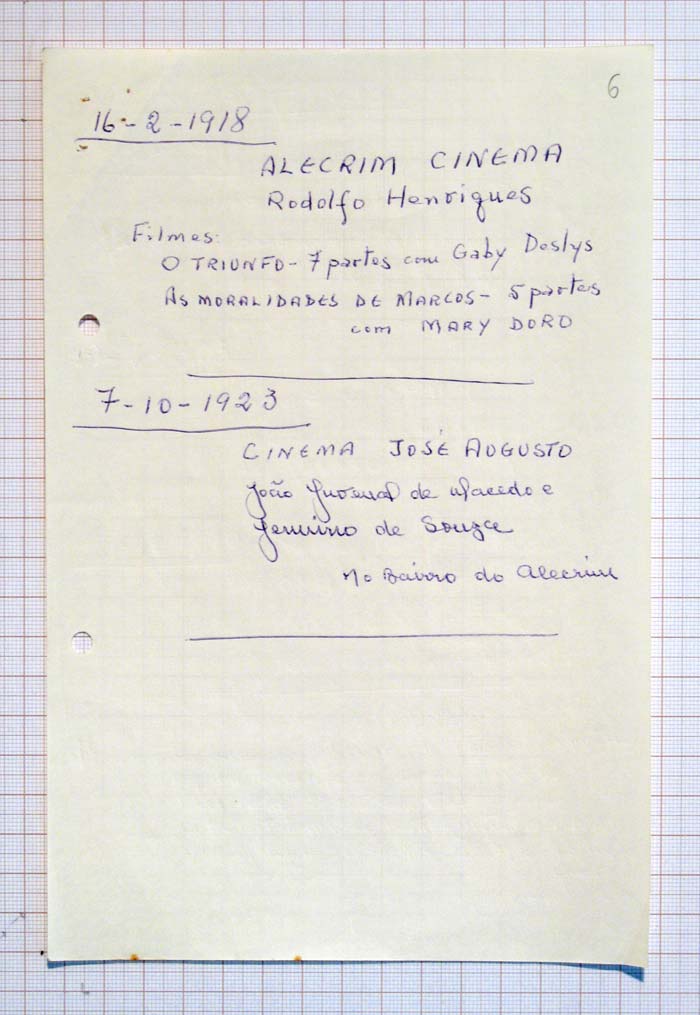 6
16-2-1918
ALECRIM CINEMA
Rodolfo Henriques
Filmes:
O TRIUNFO - 7 partes com Gaby Deslys
AS MORALIDADES DE MARCOS - 5 partes
com MARY DORO
7-10-1923
CINEMA JOSÉ AUGUSTO
João Juvenal de Macedo e
de Souza
No Bairro do Alecrim